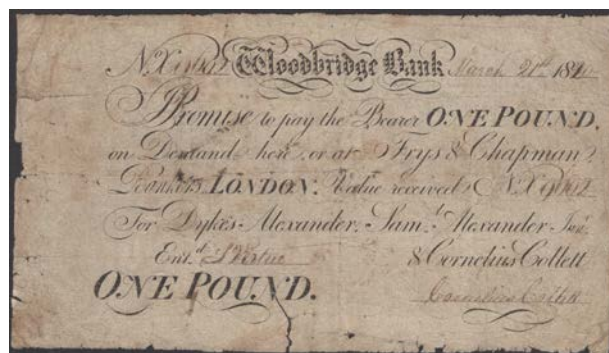 No. Woodbridge Bank March 21st
I Promise to pay the Bearer ONE POUND.
on Demand here or at Frys & Chapman
Bankers LONDON. Value received No.
For Dykes Alexander. Saml. Alexander Jun.
Entd. & Cornelius Collett
ONE POUND. Cornelius Collett